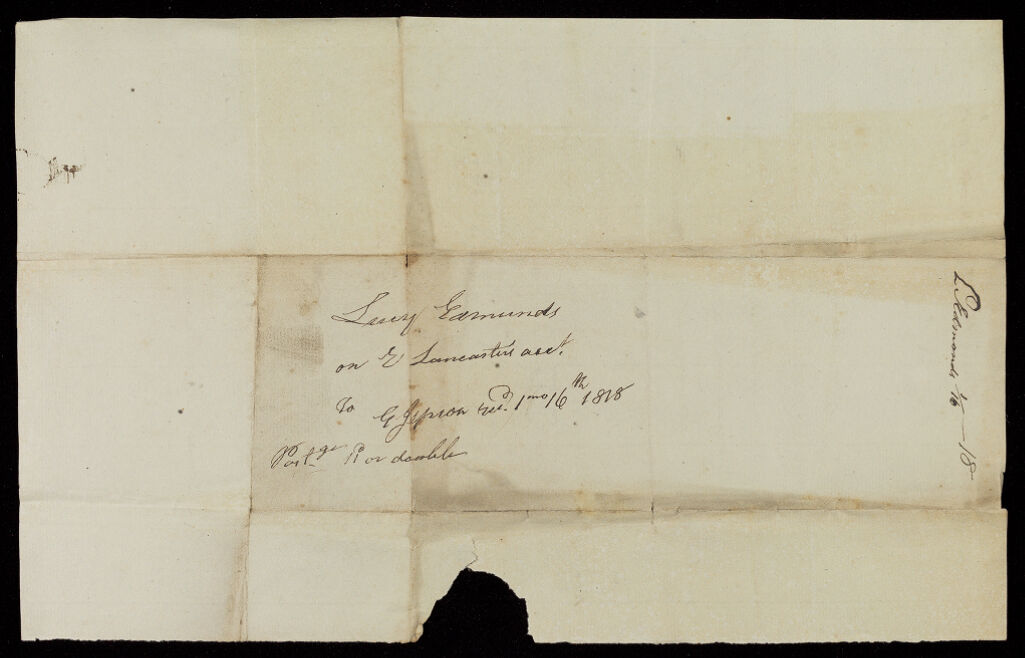 Lucy Edmunds
on E Lancaster's acct.
To G Jepson recd. 1mo 16th 1818
Postge Pd or double
L Edmonds 1/16 - 18